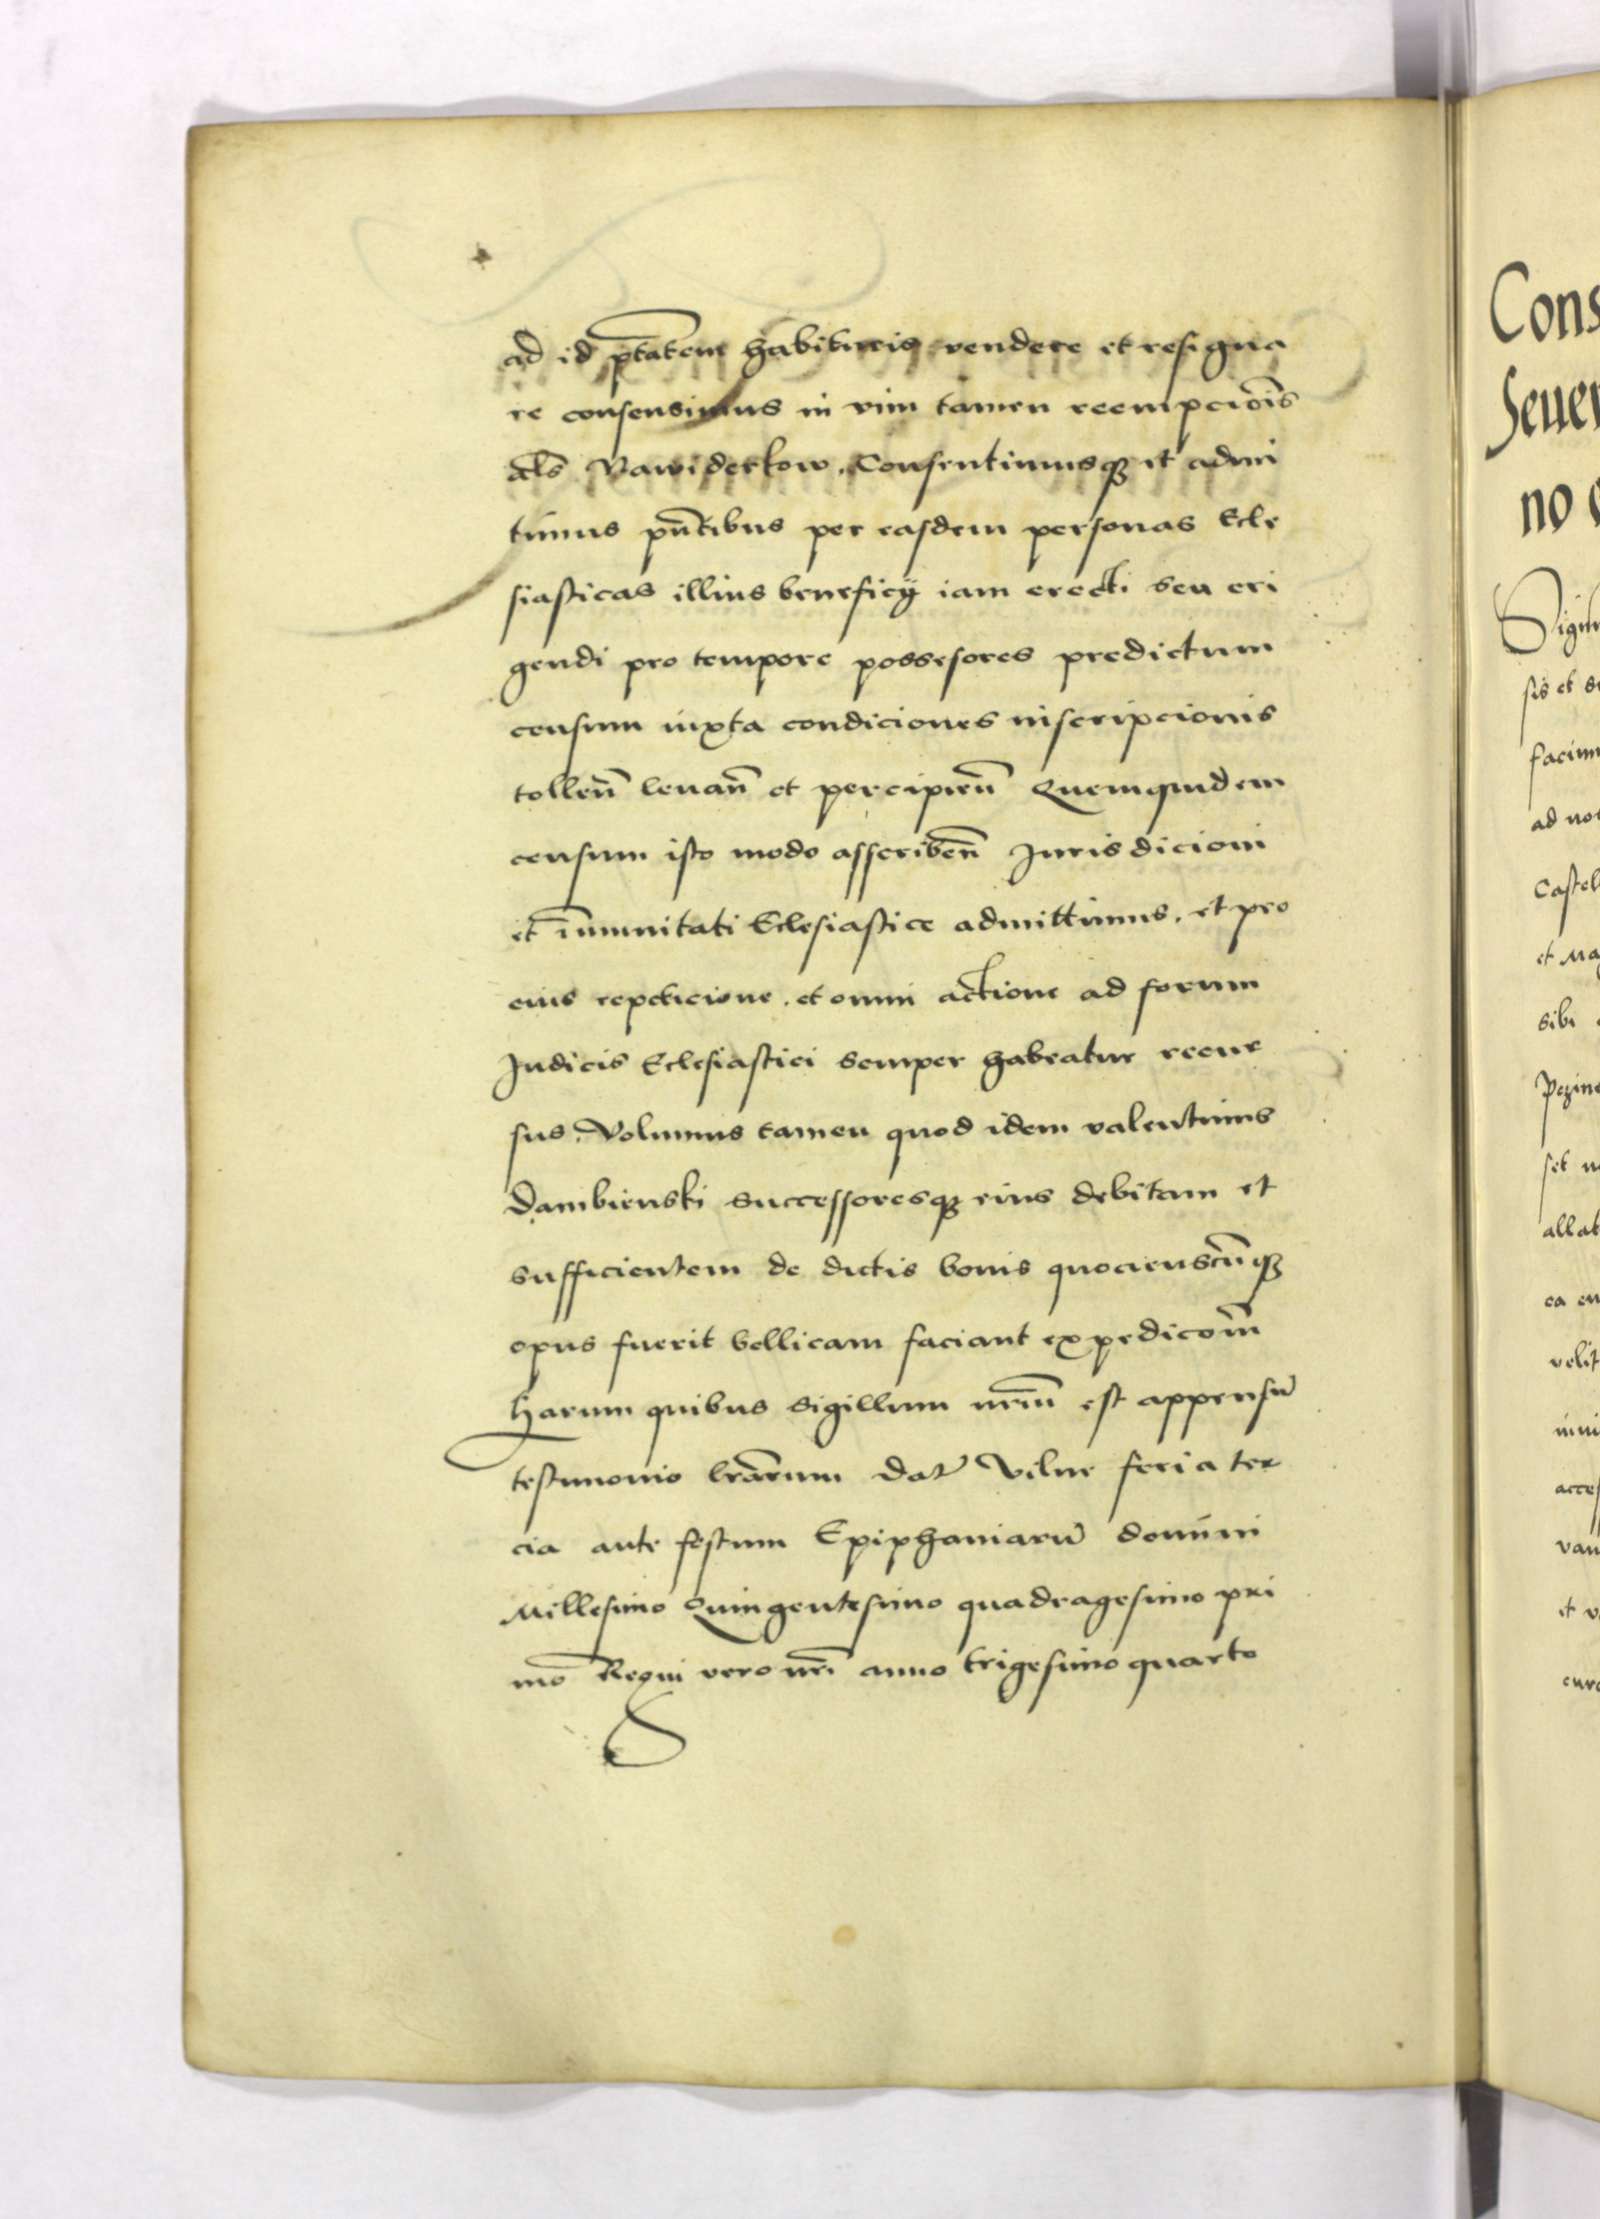 ad id ptatem habituris vendere et resigna
re consensimus in vim tamen reempcioīs
als Nawiderkow. Consentimusqꝫ et admi
timus pn̄tibus per easdem personas Ecle
siasticas illius beneficÿ iam erecti seu eri
gendi pro tempore possesores predictum
censum iuxta condiciones inscripcionis
tollen̄ levan̄ et percipien̄ Quemquidem
censum isto modo asscriben̄ Jurisdicioni
et īmunitati Eclesiastice admittimus. et pro
eius repeticione. et omni actione ad forum
Judicis Eclesiastici semper habeatur recur
sus. Volumus tamen quod idem valentinus
Dambienski successoresqꝫ eius debitam et
sufficientem de dictis bonis quocienscūqꝫ
opus fuerit bellicam faciant expedicoīm
Harum quibus sigillum nr̄m est appensū
testimonio lrārum Dat Vilne feria ter
cia ante festum Epiphaniarū domini
Millesimo Quingentesimo quadragesimo pri
mo Regni vero nrī anno trigesimo quarto
Cons
Sever
no
Sigis
sis et
facim
ad no
Castel
et Ma
sibi
set
allat
ea
velit
acces
van
et